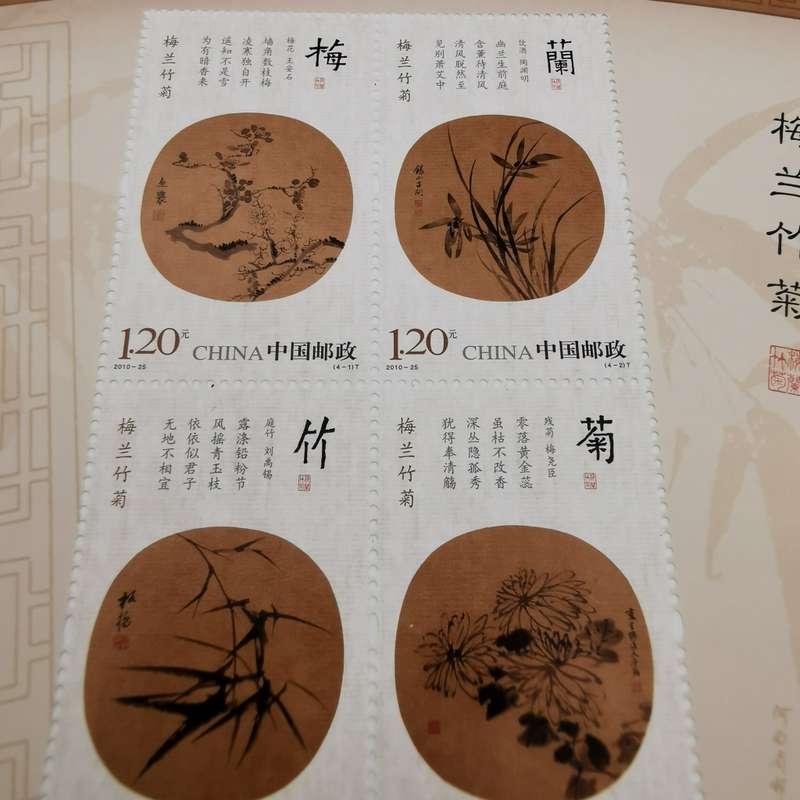 梅
梅花 王安石
墙角数枝梅
凌寒独自开
遥知不是雪
为有暗香来
梅兰竹菊
1.20元 CHINA 中国邮政
2010-25 (4-1)T
蘭
饮酒 陶渊明
幽兰生前庭
含薰待清风
清风脱然至
见别萧艾中
梅兰竹菊
1.20元 CHINA 中国邮政
2010-25 (4-2)T
竹
庭竹 刘禹锡
露涤铅粉节
风摇青玉枝
依依似君子
无地不相宜
梅兰竹菊
板桥
菊
残菊 梅尧臣
零落黄金蕊
虽枯不改香
深丛隐孤秀
犹得奉清觞
梅兰竹菊
梅兰竹菊